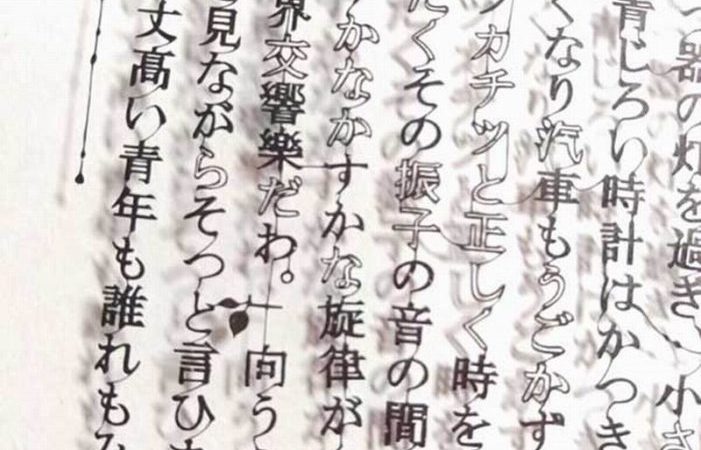 つ器の灯を過ぎ、小さ
青じろい時計はかつき
くなり汽車もうごかず
ツカチツと正しく時を
たくその振子の音の間
かなかすかな旋律が
界交響樂だわ。」向う
見ながらそつと言ひ
丈髙い青年も誰れもみ